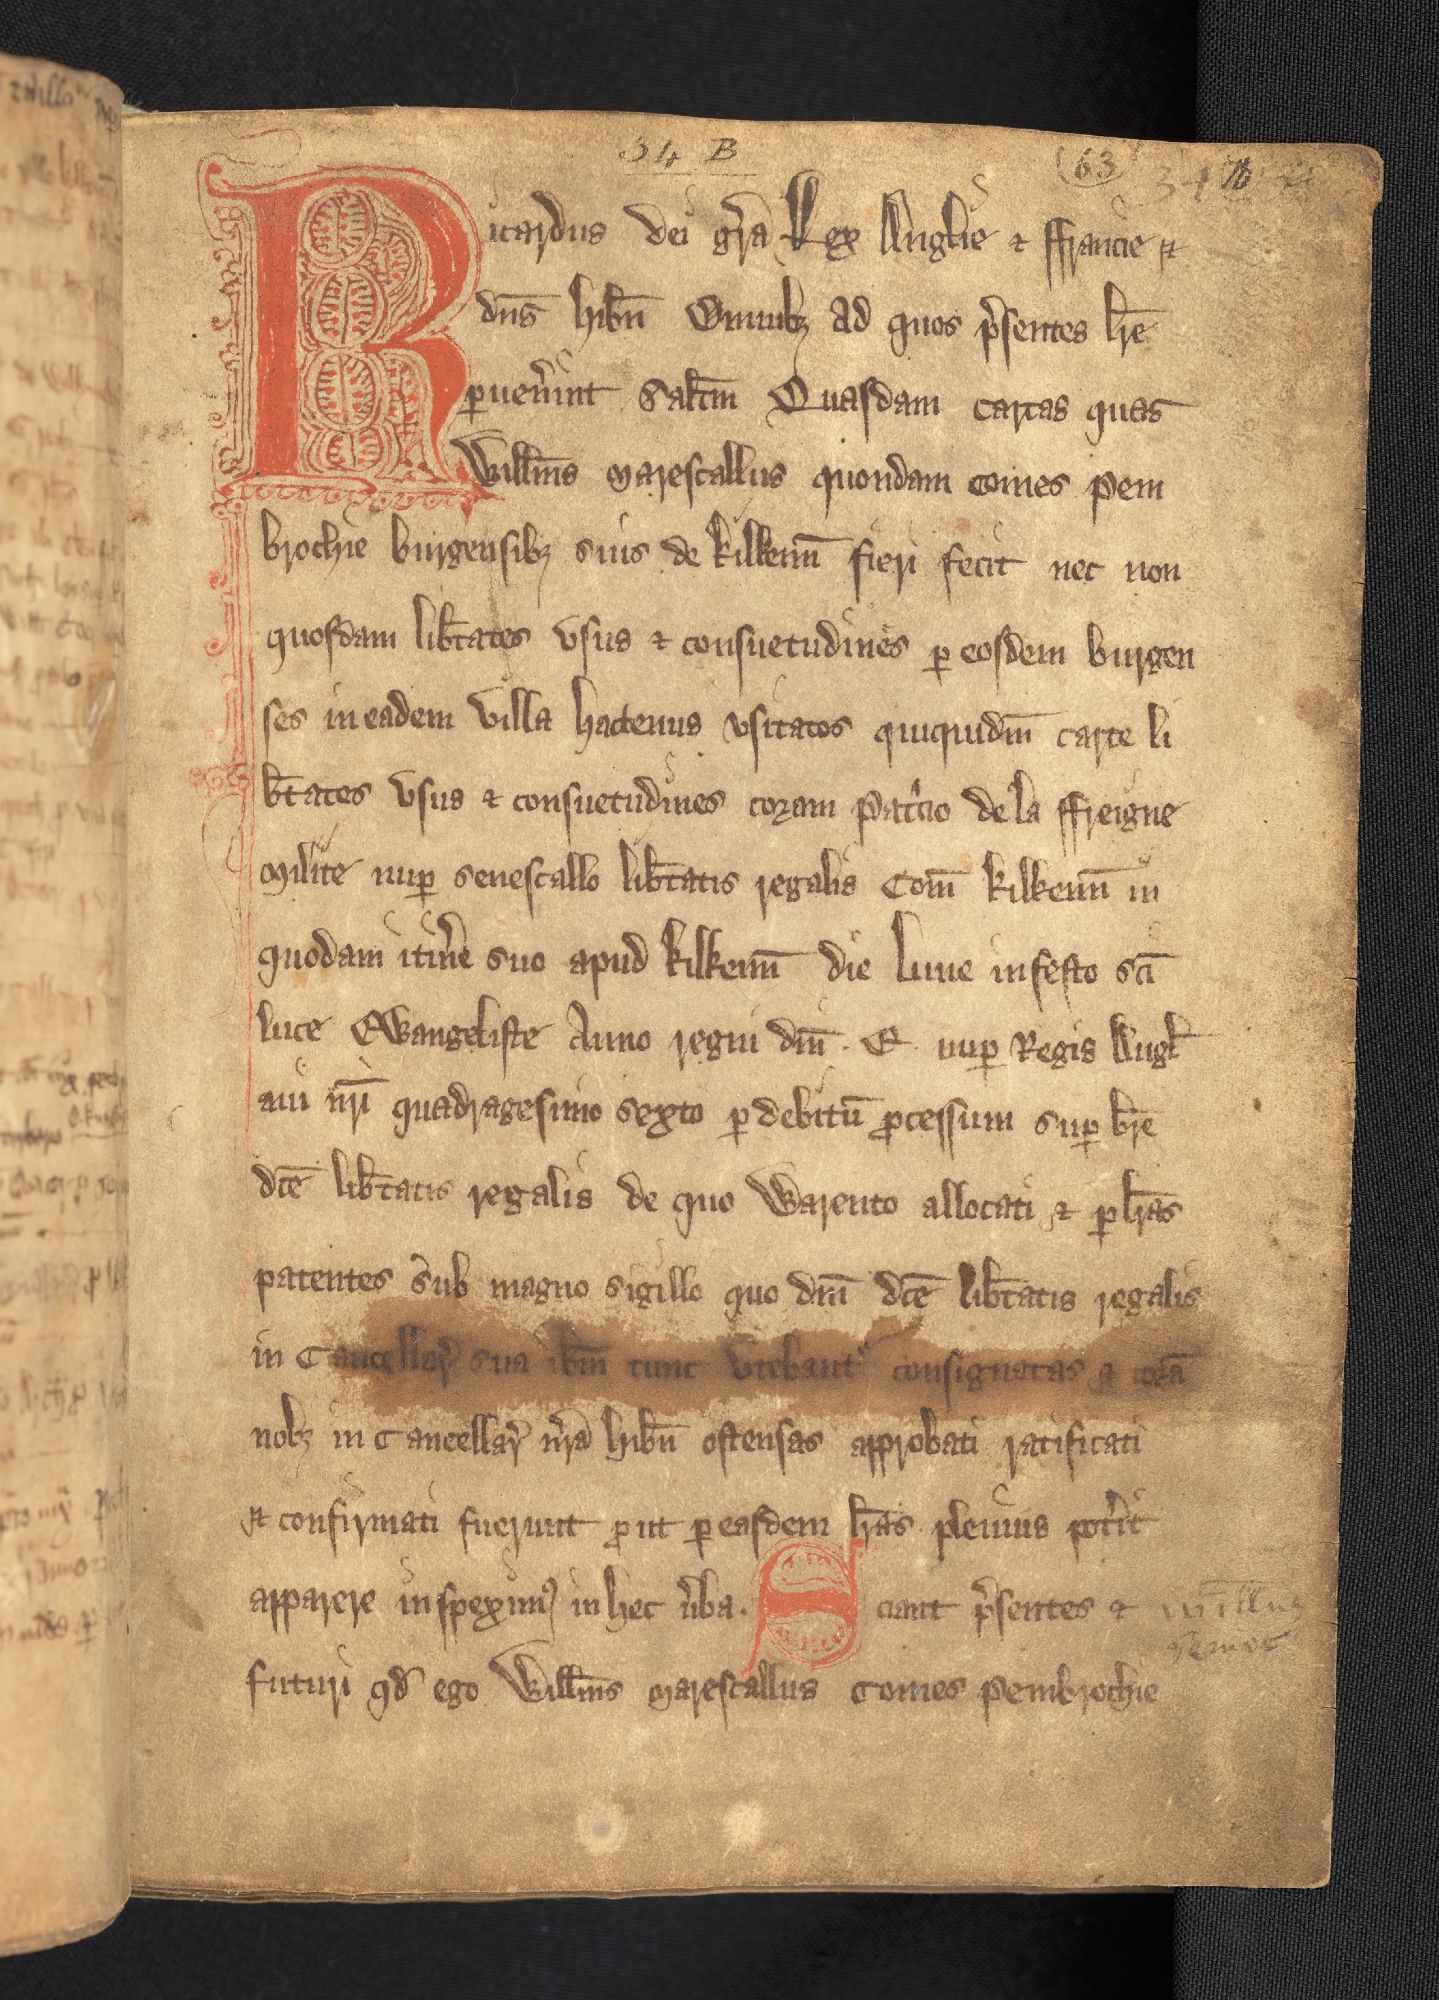 34 B
63
Ricardus dei gr̄a Rex Anglie ⁊ ffrancie et
dn̄s hib̄n Omnibꝫ ad quos p̄sentes lr̄e
ꝑuen̄int Salt̄m Quasdam cartas quas
Will̄ms marescallus quondam comes pem
brochie burgensibꝫ suis de kilkenn̄ fieri fecit nec non
quosdam lib̄tates vsus ⁊ consuetudines ꝑ eosdem burgen
ses in eadem villa hactenus vsitatos quiquid̄m carte li
b̄tates vsus ⁊ consuetudines coram Pat̄cio de la ffreigne
milite nuꝑ senescallo lib̄tatis regalis Com̄ kilkenn̄ in
quodam itin̄e suo apud kilkenn̄ die lune in festo sc̄i
luce Ewangeliste Anno regni dn̄i . E . nuꝑ Regis Angl̄
aui nr̄i quadragesimo sexto ꝑ debitū ꝓcessum suꝑ br̄e
dc̄e lib̄tatis regalis de quo Warento allocati ⁊ ꝑ lr̄as
patentes sub magno sigillo quo dn̄i dc̄e lib̄tatis regalis
in Cancellar̄ sua ib̄m tunc vtebant᷑ consignatas et corā
nobꝫ in Cancellar̄ nr̄a hib̄n ostensas approbati ratificati
et confirmati fuerunt ꝓut ꝑ easdem lr̄as plenius pot̄it
apparere inspeximꝰ in hec v̄ba . Sciant p̄sentes ⁊
futuri qd̄ ego Will̄ms marescallus Comes Pembrochie